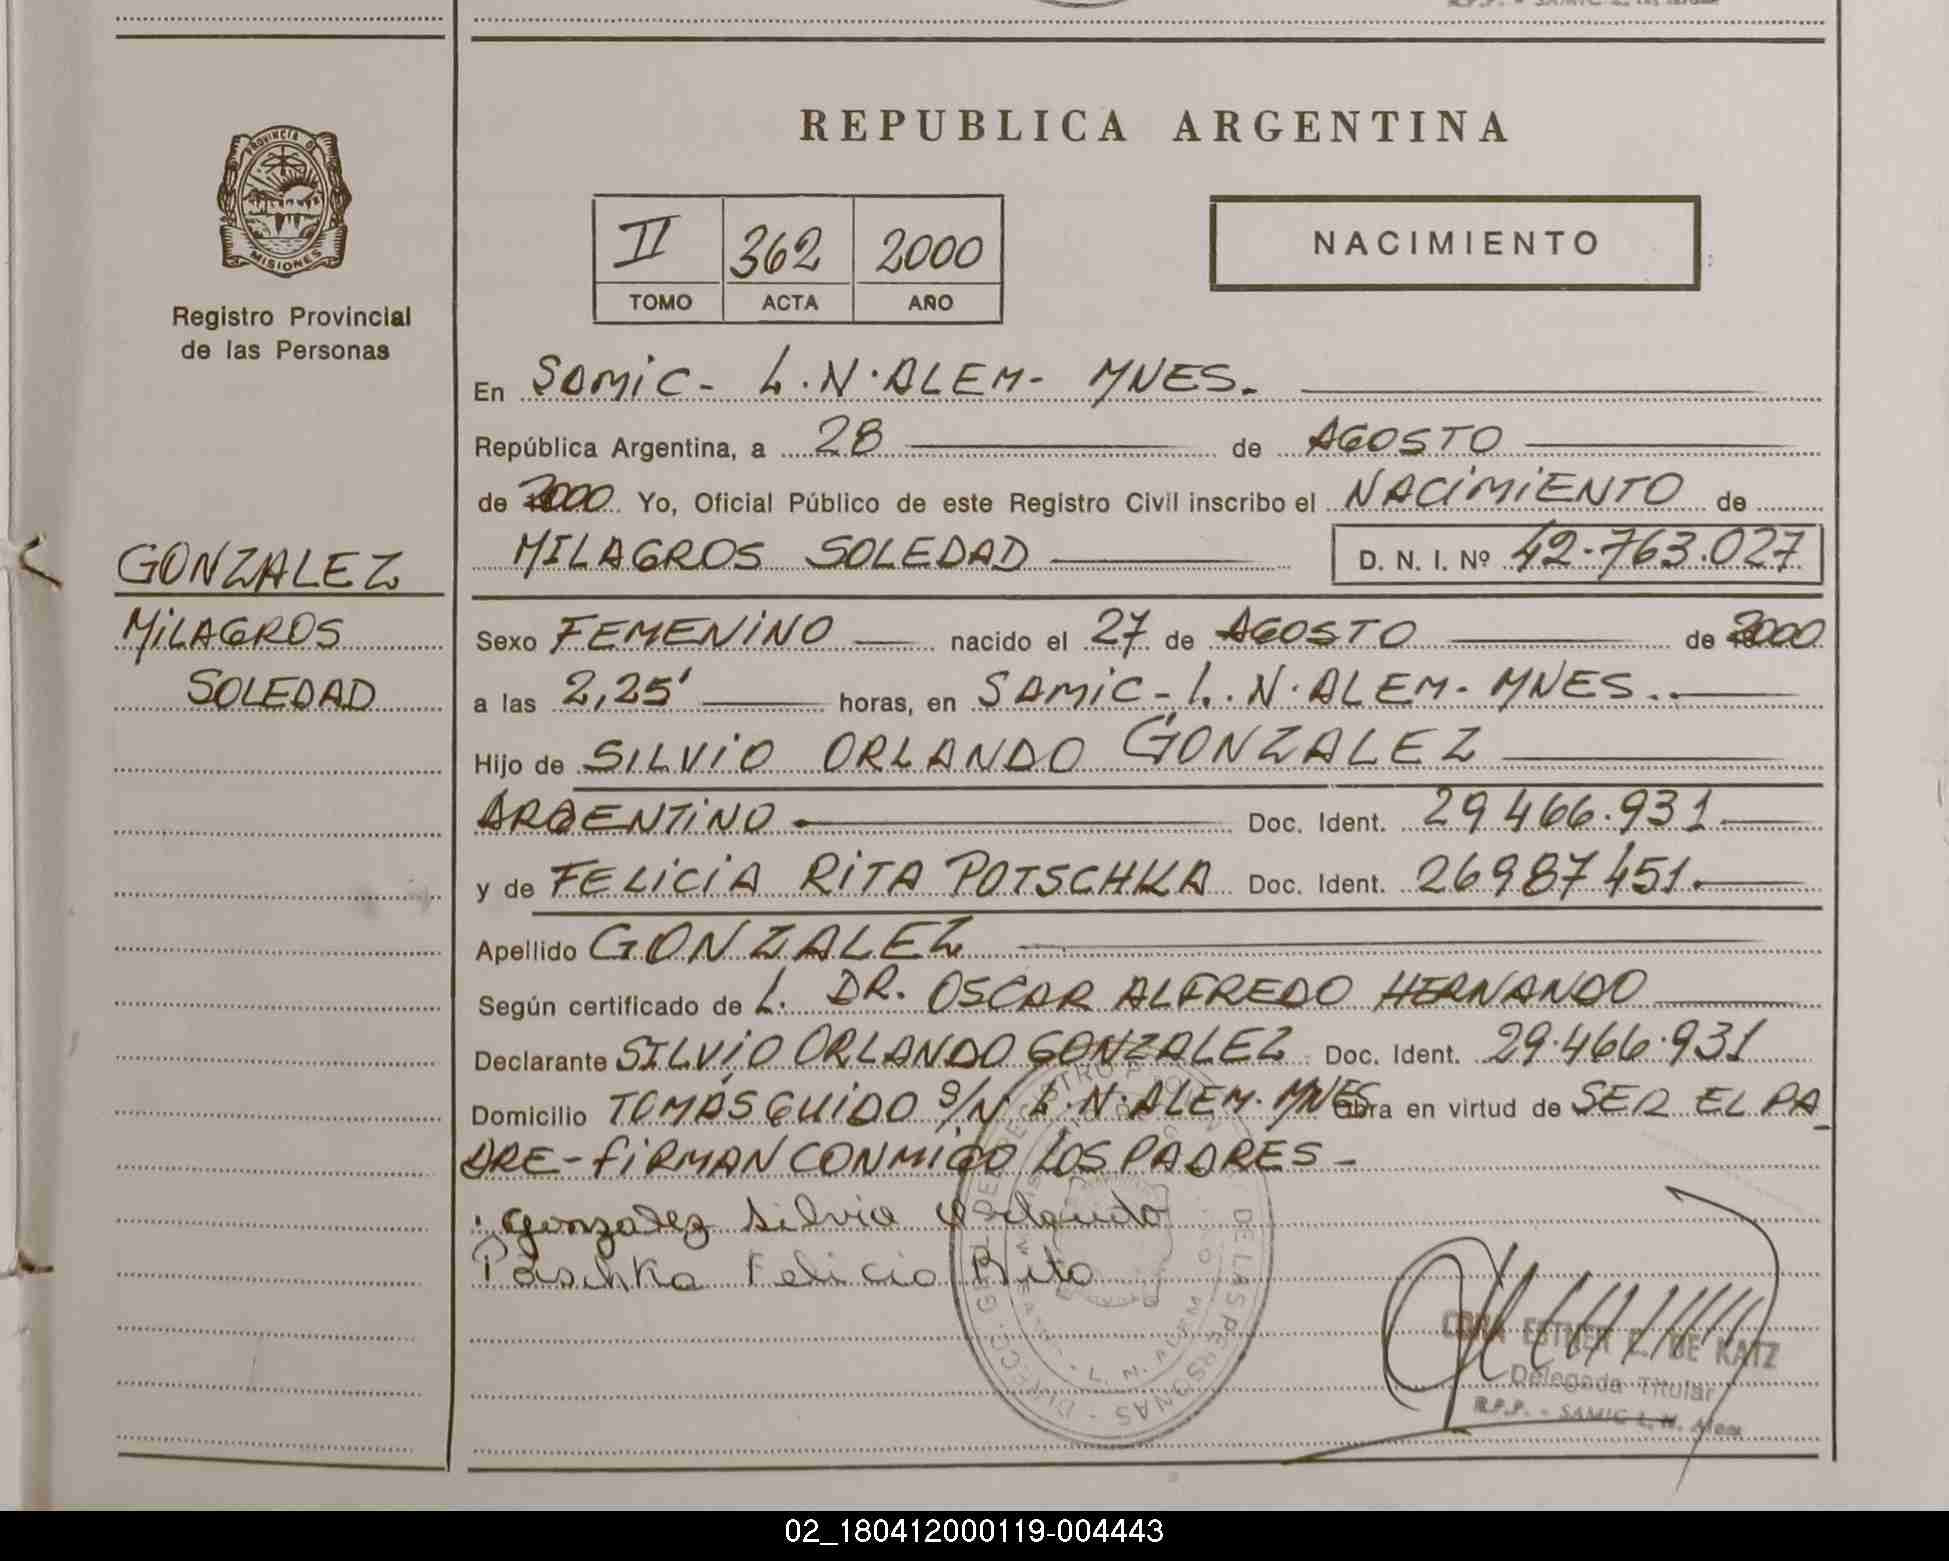 R.P.P. - SAMIC L.
REPUBLICA ARGENTINA
PROVINCIA DE
MISIONES
II 362 2000
TOMO ACTA AÑO
NACIMIENTO
Registro Provincial
de las Personas
En SAMIC - L.N.ALEM - MNES.
República Argentina, a 28 de AGOSTO
de 2000 Yo, Oficial Público de este Registro Civil inscribo el NACIMIENTO de
MILAGROS SOLEDAD D. N. I. Nº 42.763.027
GONZALEZ
MILAGROS
SOLEDAD
Sexo FEMENINO nacido el 27 de AGOSTO de 2000
a las 2,25' horas, en SAMIC - L.N.ALEM - MNES.
Hijo de SILVIO ORLANDO GONZALEZ
ARGENTINO Doc. Ident. 29.466.931
y de FELICIA RITA POTSCHKA Doc. Ident. 26987451.
Apellido GONZALEZ
Según certificado de L. DR. OSCAR ALFREDO HERNANDO
Declarante SILVIO ORLANDO GONZALEZ Doc. Ident. 29.466.931
Domicilio TOMÁS GUIDO S/N L.N.ALEM. MNES Obra en virtud de SER EL PA
DRE - FIRMAN CONMIGO LOS PADRES -
Gonzalez Silvio Orlando
Felicia Rita
ESTHER E. DE KATZ
Delegada Titular
R.P.P. - SAMIC L. N. Alem
02_180412000119-004443